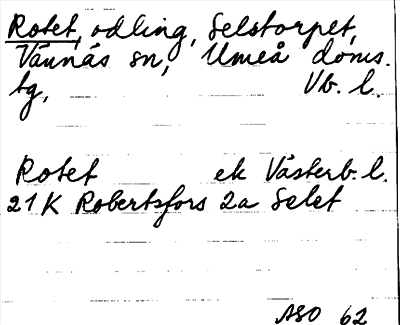 Rotet, odling, Selstorpet,
Vännäs sn, Umeå doms.
tg, Vb. l.
Rotet ek Västerb. l.
21K Robertsfors 2a Selet
ASO 62